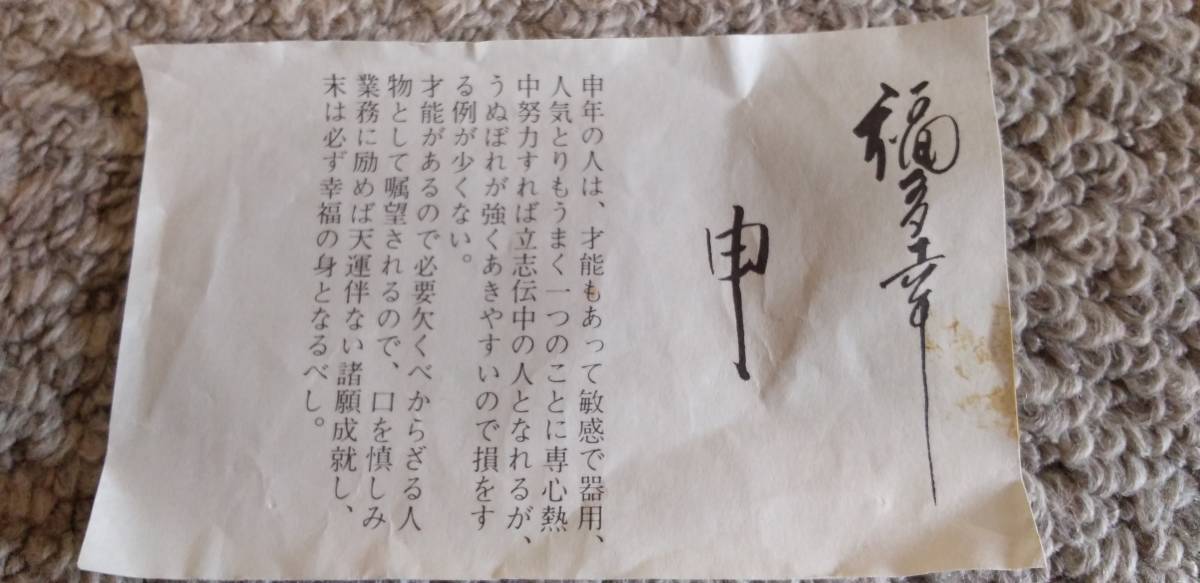 福多幸
申
申年の人は、才能もあって敏感で器用、
人気とりもうまく一つのことに専心熱
中努力すれば立志伝中の人となれるが、
うぬぼれが強くあきやすいので損をす
る例が少くない。
才能があるので必要欠くべからざる人
物として嘱望されるので、口を慎しみ
業務に励めば天運伴ない諸願成就し、
末は必ず幸福の身となるべし。